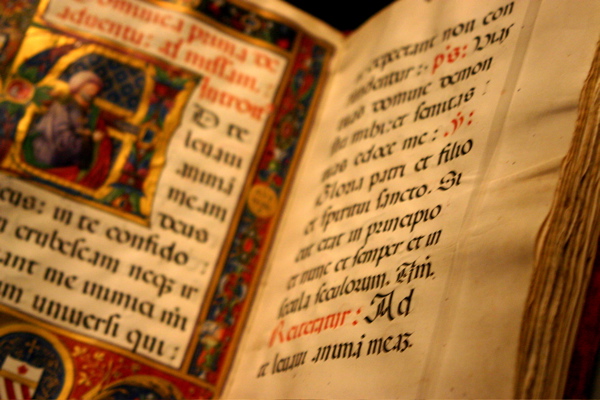 Dominica prima de
adventu: ad missam.
Introit'
D te
levavi
animā
meam
deus
meus: in te confido
non erubescam neqz ir
rideant me inimici mī
etenim universi qui :
te expectant non con
fundentur: ps: Vias
tuas domine demon
stra mihi: et semitas :
tuas edoce me : ℣:
Gloria patri et filio
et spiritui sancto. Si
cut erat in principio
et nunc et semper et in
secula seculorum. Am.
Reiteratur : Ad
te levavi animā meaz.